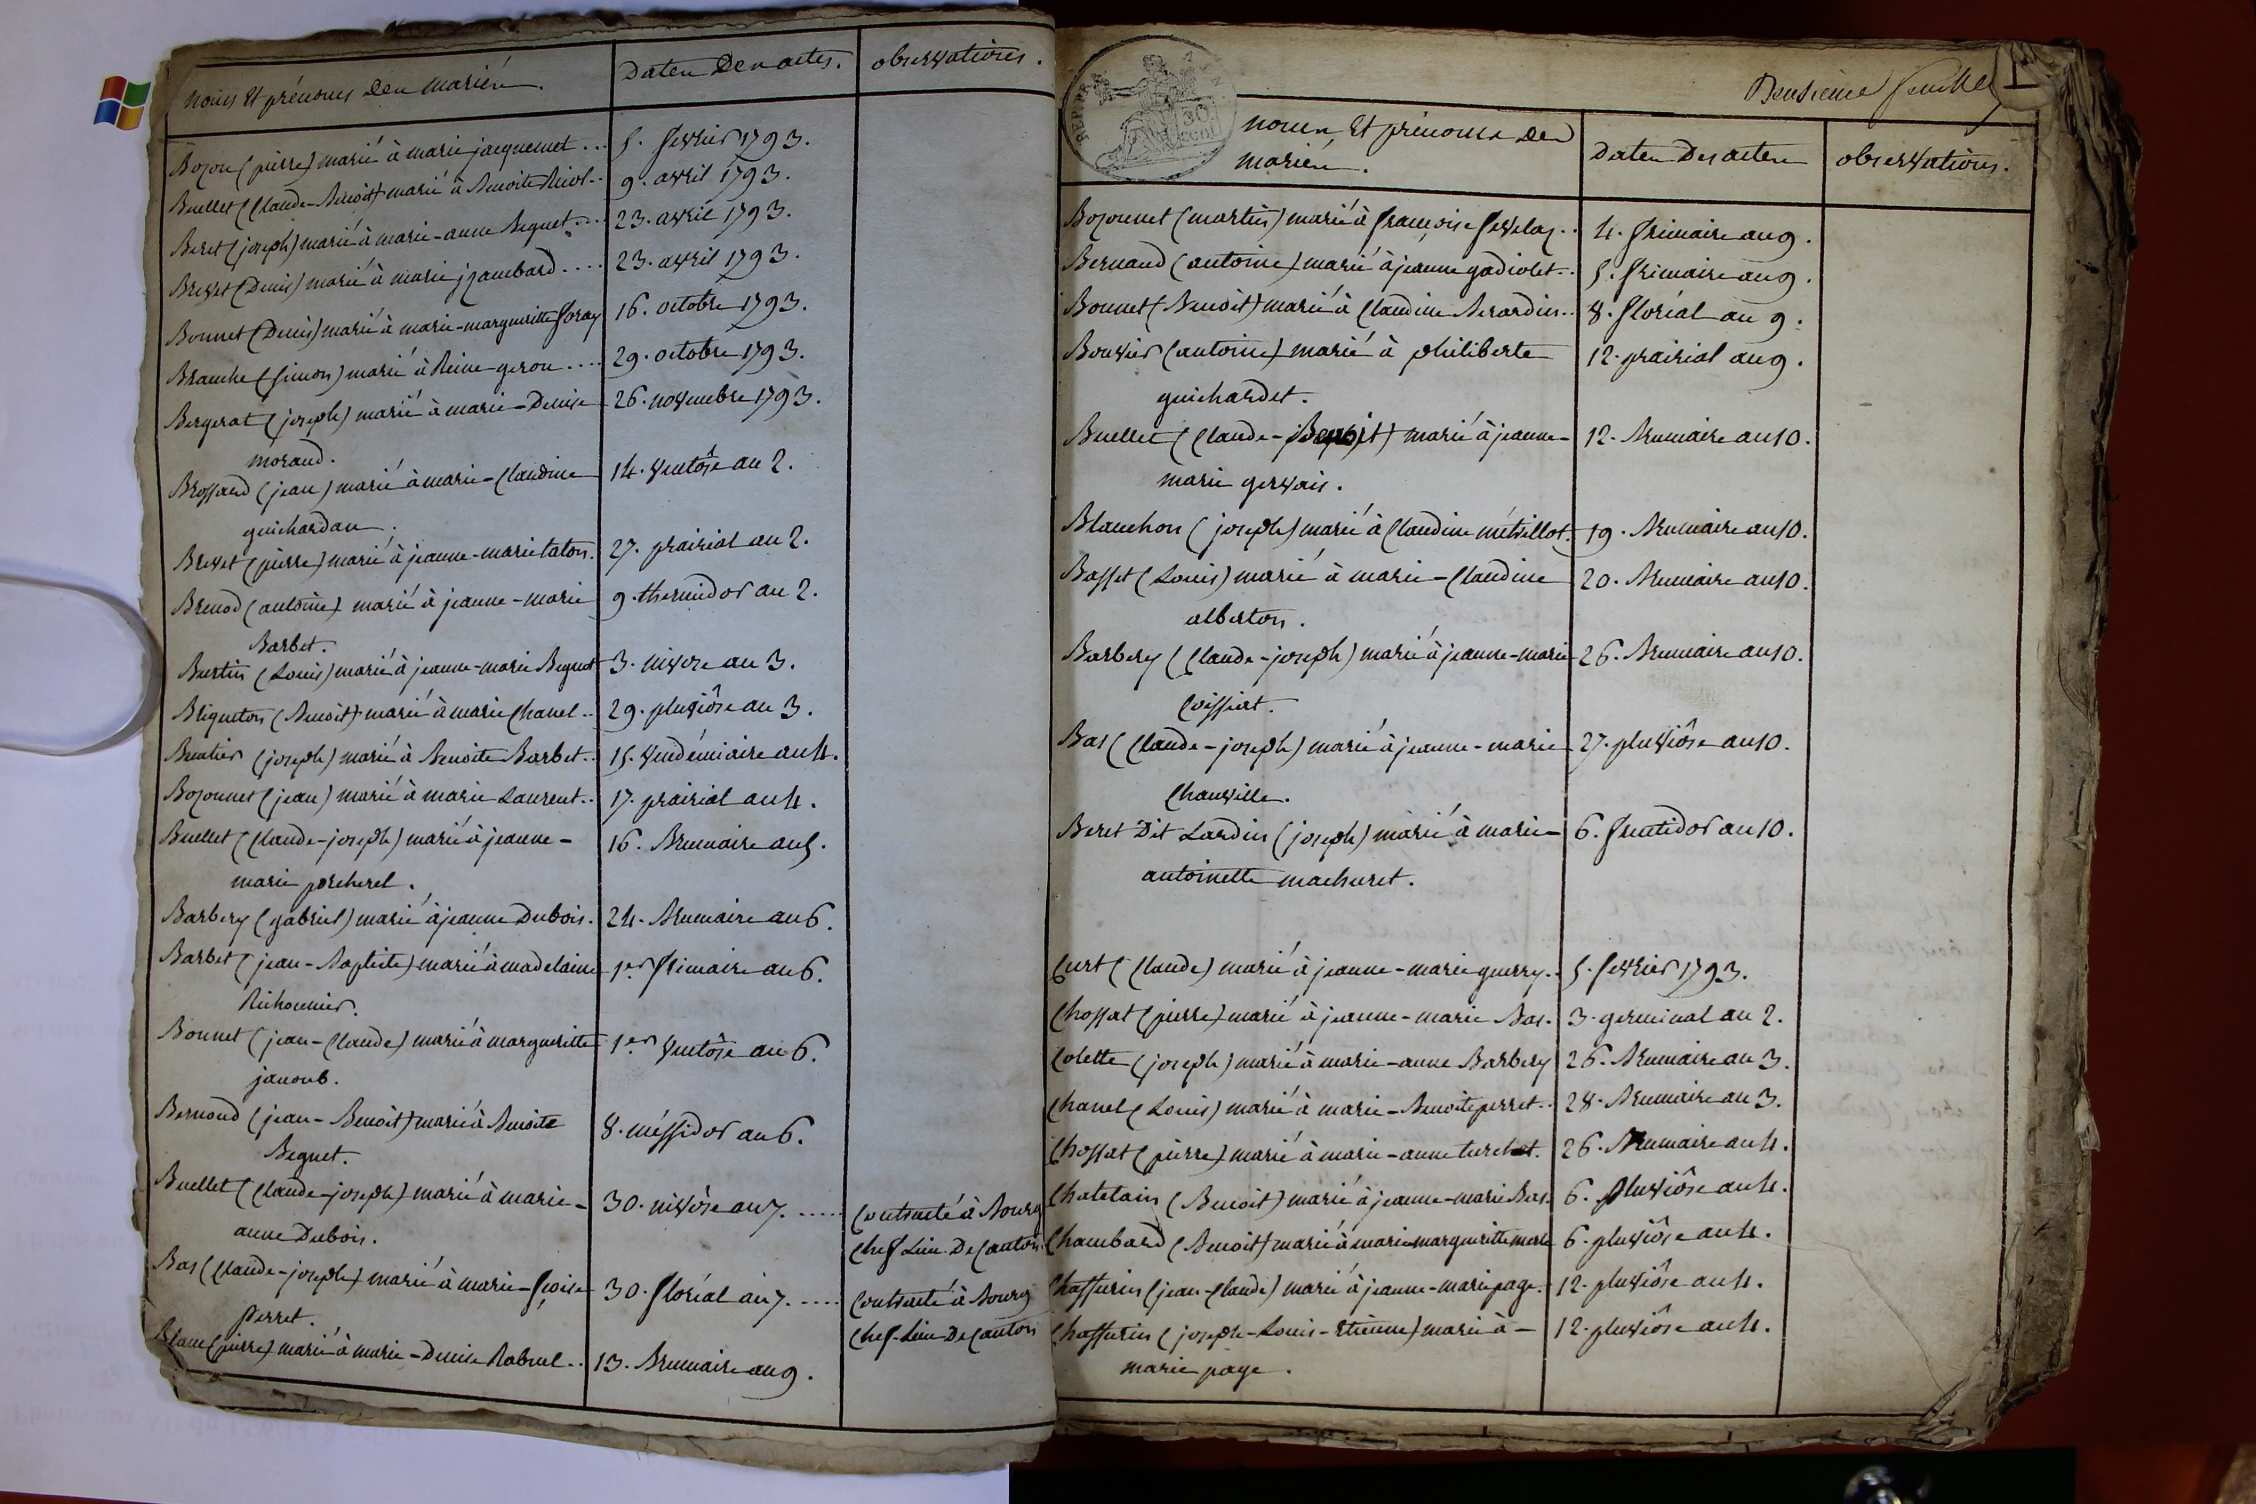 noms Et prénoms des mariés.
Dates Des actes.
observations.
Bozon (pierre) marié à marie jacquemet ...
5. fevrier 1793.
Buellet (Claude-Benoit) marié à Benoite Niol..
9. avril 1793.
Beret (joseph) marié à marie-anne Beguet....
23. avril 1793.
Brevet (Denis) marié à marie jgambard ....
23. avril 1793.
Bonnet (Denis) marié à marie-margueritte foray
16. octobre 1793.
Branche (simon) marié à Reine-geron ....
29. octobre 1793.
Bergerat (joseph) marié à marie-Denise
26. novembre 1793.
morand.
Brossard (jean) marié à marie-Claudine
14. Ventôse an 2.
guichardan.
Brevet (pierre) marié à jeanne-marie taton.
27. prairial an 2.
Brenod (antoine) marié à jeanne-marie
9. thermidor an 2.
Barbet.
Burtin (Louis) marié à jeanne-marie Beguet
3. nivose an 3.
Briqueton (Benoit) marié à marie Chanel..
29. pluviôse an 3.
Buatier (joseph) marié à Benoite Barbet..
15. Vendémiaire an 4.
Bozonnet (jean) marié à marie Laurent..
17. prairial an 4.
Buellet (Claude-joseph) marié à jeanne-
16. Brumaire an 5.
marie porcherel.
Barbery (gabriel) marié à jeanne Dubois.
24. Brumaire an 6.
Barbet (jean-Baptiste) marié à madelaine
1er frimaire an 6.
Richonnier.
Bonnet (jean-Claude) marié à margueritte
1er Ventôse an 6.
janoub.
Bernoud (jean-Benoit) marié à Benoite
8. méssidor an 6.
Beguet.
Buellet (Claude-joseph) marié à marie-
30. nivôse an 7. .....
Contracté à Bourg
anne Dubois.
Chef Lieu De Canton.
Bas (Claude-joseph) marié à marie-fçoise
30. floréal an 7. .....
Contracté à Bourg
perret.
Chef-Lieu-De Canton
Blanc (pierre) marié à marie-Denise Rabuel..
13. Brumaire an 9.
Deusieme feuille
1
30
cent
noms Et prénoms des
mariés.
Dates Des actes
observations.
Bozonnet (martin) marié à françoise fevelas..
4. frimaire an 9.
Bernaud (antoine) marié à jeanne gadiolet..
5. frimaire an 9.
Bonnet (Benoit) marié à Claudine Berardin..
8. floréal an 9.
Bouvier (antoine) marié à philiberte
12. prairial an 9.
guichardet.
Buellet (Claude-Benoit) marié à jeanne-
12. Brumaire an 10.
marie gervais.
Blanchon (joseph) marié à Claudine métrillot.
19. Brumaire an 10.
Basset (Louis) marié à marie-Claudine
20. Brumaire an 10.
alberton.
Barbery (Claude-joseph) marié à jeanne-marie
26. Brumaire an 10.
Coissiat.
Bas (Claude-joseph) marié à jeanne-marie
27. pluviôse an 10.
Chanville.
Beret Dit Lardin (joseph) marié à marie-
6. fructidor an 10.
antoinette machuret.
Curt (Claude) marié à jeanne-marie guerry..
5. fevrier 1793.
Chossat (pierre) marié à jeanne-marie Bas.
3. germinal an 2.
Colette (joseph) marié à marie-anne Barbery
26. Brumaire an 3.
Chanel (Louis) marié à marie-Benoite perret..
28. Brumaire an 3.
Chossat (pierre) marié à marie-anne turchet.
26. Brumaire an 4.
Chatelain (Benoit) marié à jeanne-marie Bas.
6. pluviôse an 4.
Chambard (Benoit) marié à marie margueritte merle
6. pluviôse an 4.
Chaffurin (jean-Claude) marié à jeanne-marie page.
12. pluviôse an 4.
Chaffurin (joseph-Louis-Etienne) marié à-
12. pluviôse an 4.
marie page.